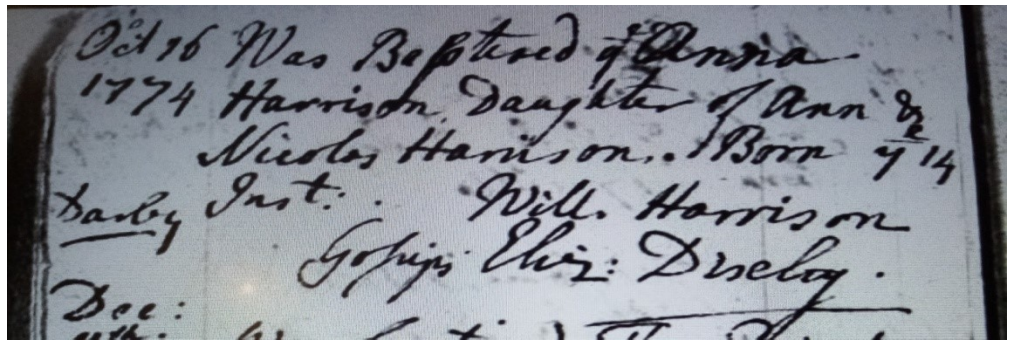 Oct 16 Was Baptized Anna
1774 Harrison, Daughter of Ann &
Nicolas Harrison.. Born ye 14
Darby Inst: . Will. Harrison
Gossips Eliz: Diseloy .
Dec: